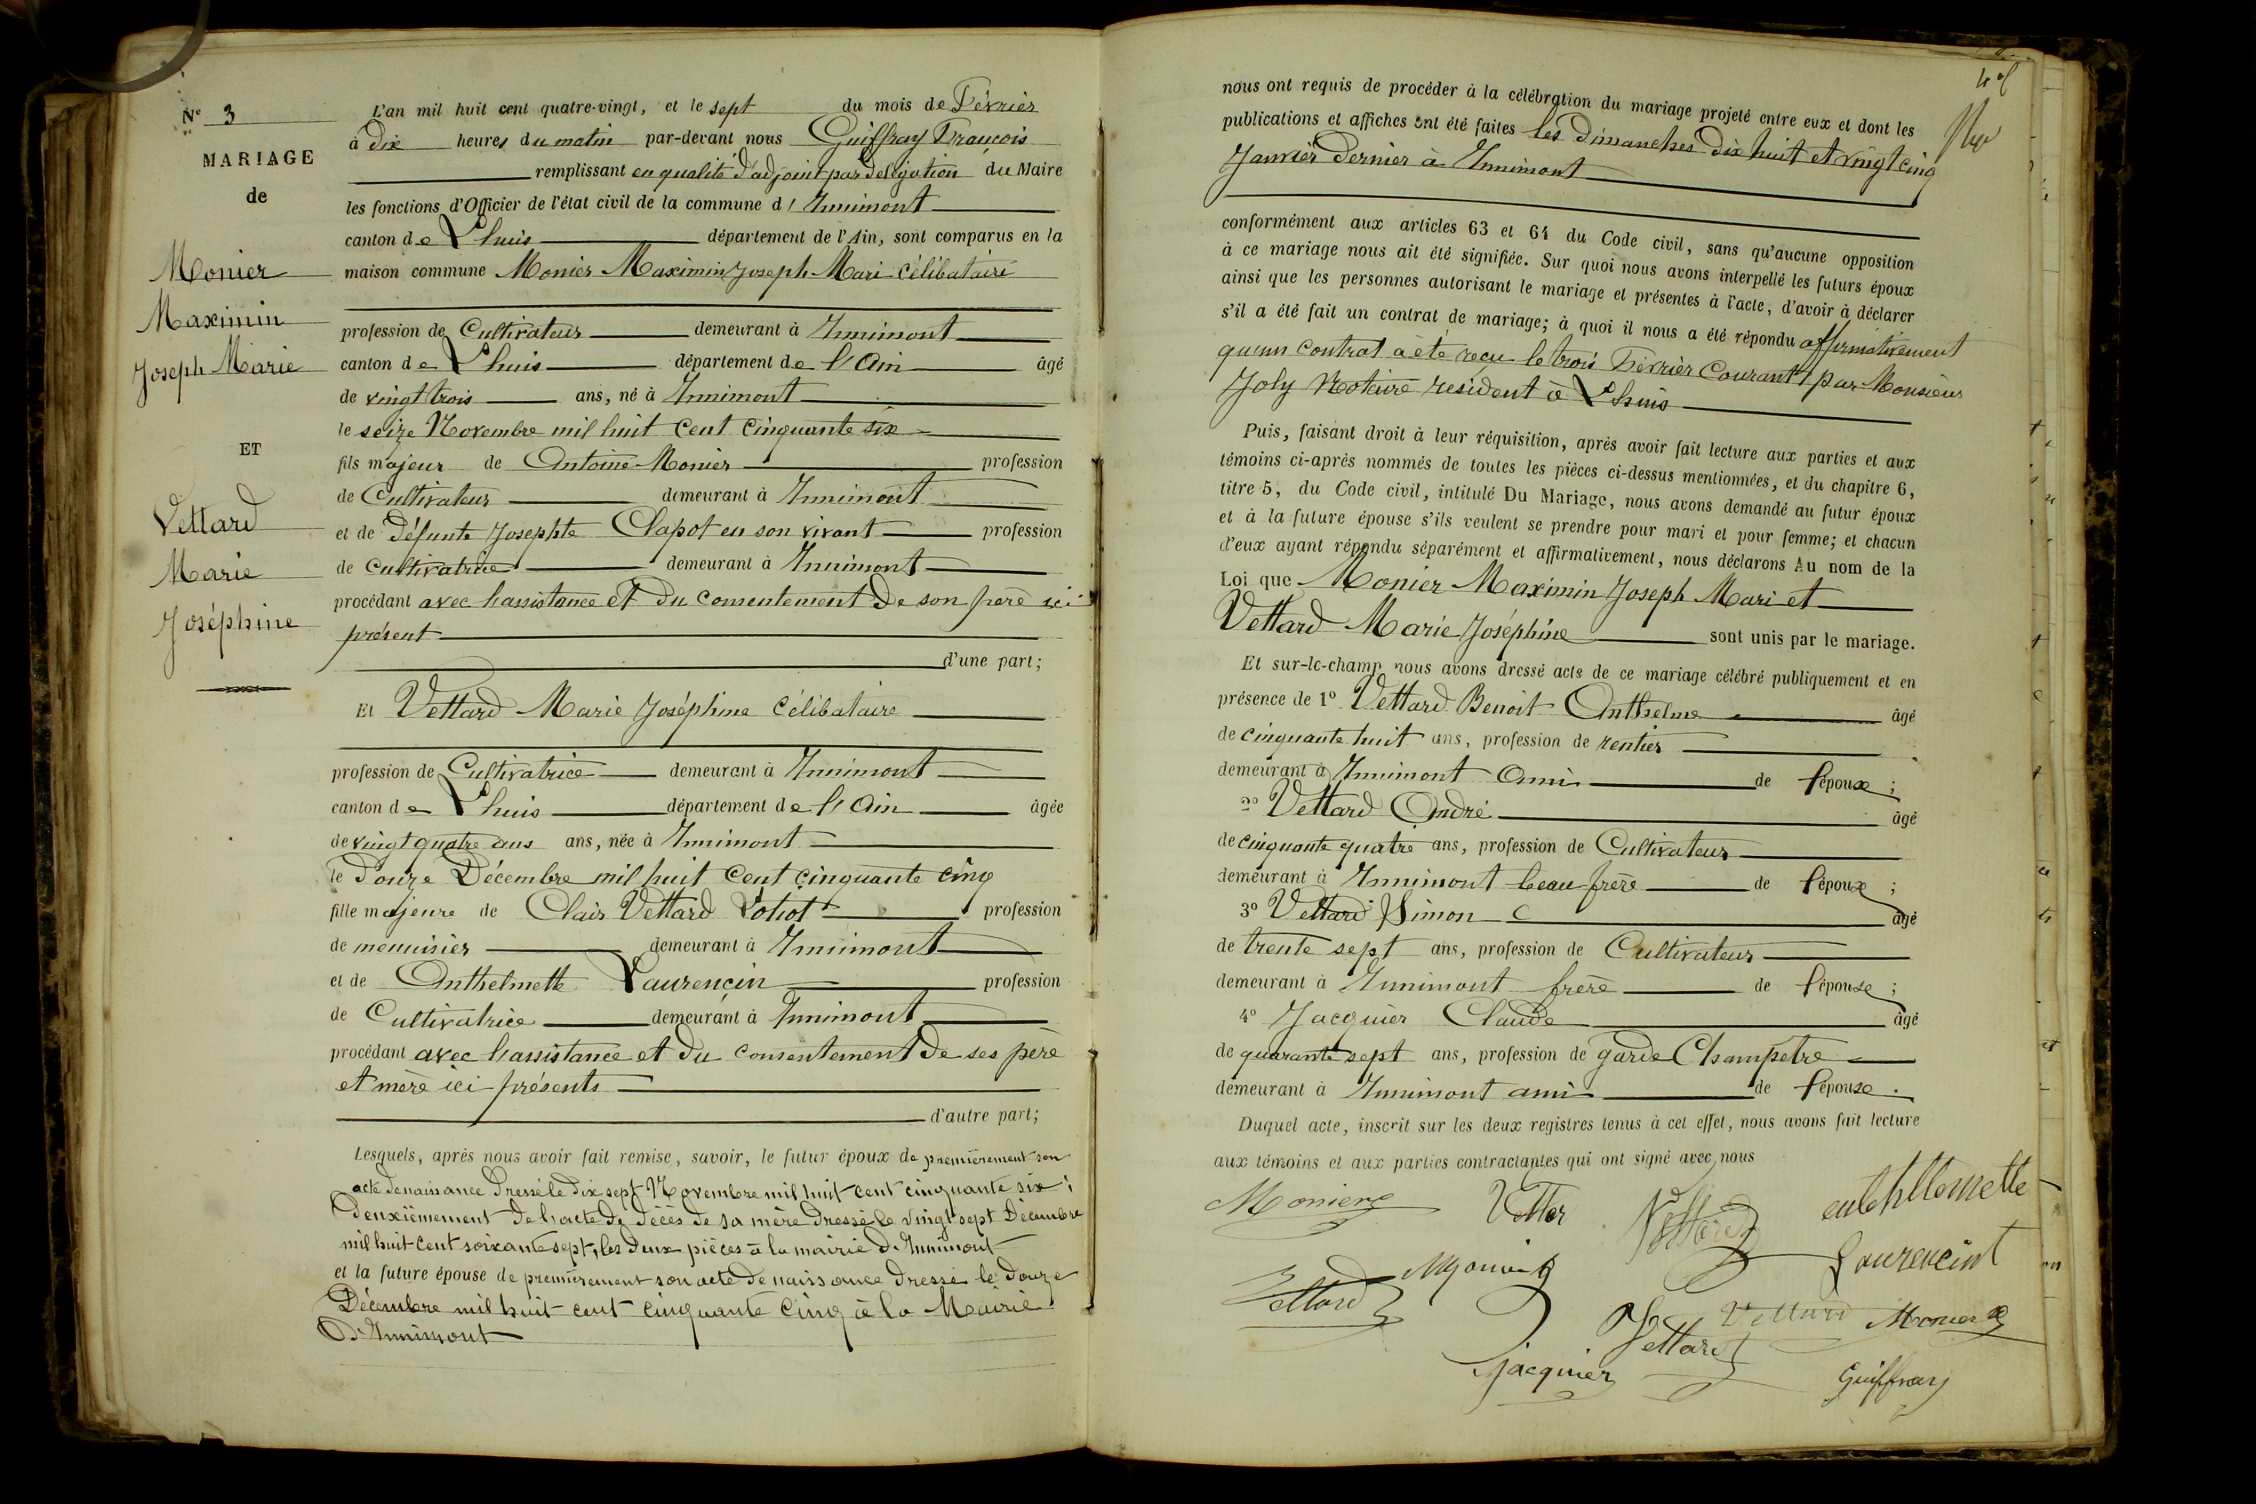 N° 3
MARIAGE
de
Monier
Maximin
Joseph Marie
ET
Vettard
Marie
Joséphine
L'an mil huit cent quatre-vingt, et le sept du mois de Février
à dix heures du matin par-devant nous Guiffray François
remplissant en qualité d'adjoint par délégation du Maire
les fonctions d'Officier de l'état civil de la commune d'Innimont
canton de Lhuis département de l'Ain, sont comparus en la
maison commune Monier Maximin Joseph Mari célibataire
profession de Cultivateur demeurant à Innimont
canton de Lhuis département de l'Ain âgé
de vingt trois ans, né à Innimont
le seize Novembre mil huit cent cinquante six
fils majeur de Antoine Monier profession
de Cultivateur demeurant à Innimont
et de Défunte Josephte Clapot en son vivant profession
de cultivatrice demeurant à Innimont
procédant avec l'assistance et du consentement de son père ici
présent
d'une part;
Et Vettard Marie Joséphine célibataire
profession de Cultivatrice demeurant à Innimont
canton de Lhuis département de l'Ain âgée
de vingt quatre ans ans, née à Innimont
le Douze Décembre mil huit cent cinquante cinq
fille majeure de Clair Vettard profession
de menuisier demeurant à Innimont
et de Anthelmette Laurencin profession
de Cultivatrice demeurant à Innimont
procédant avec l'assistance et du consentement de ses père
et mère ici présents
d'autre part;
Lesquels, après nous avoir fait remise, savoir, le futur époux de premièrement son
acte de naissance Dressé le dix sept Novembre mil huit cent cinquante six;
deuxièmement de l'acte de décès de sa mère dressé le vingt sept Décembre
mil huit cent soixante sept, les deux pièces à la mairie d'Innimont
et la future épouse de premièrement son acte de naissance dressé le douze
Décembre mil huit cent cinquante cinq à la Mairie
D'Innimont
nous ont requis de procéder à la célébration du mariage projeté entre eux et dont les
publications et affiches ont été faites les Dimanches dix huit et vingt cinq
Janvier Dernier à Innimont
conformément aux articles 63 et 64 du Code civil, sans qu'aucune opposition
à ce mariage nous ait été signifiée. Sur quoi nous avons interpellé les futurs époux
ainsi que les personnes autorisant le mariage et présentes à l'acte, d'avoir à déclarer
s'il a été fait un contrat de mariage; à quoi il nous a été répondu affirmativement
qu'un contrat a été reçu le trois Février Courant par Monsieur
Joly Notaire resident à Lhuis
Puis, faisant droit à leur réquisition, après avoir fait lecture aux parties et aux
témoins ci-après nommés de toutes les pièces ci-dessus mentionnées, et du chapitre 6,
titre 5, du Code civil, intitulé Du Mariage, nous avons demandé au futur époux
et à la future épouse s'ils veulent se prendre pour mari et pour femme; et chacun
d'eux ayant répondu séparément et affirmativement, nous déclarons Au nom de la
Loi que Monier Maximin Joseph Mari et
Vettard Marie Joséphine sont unis par le mariage.
Et sur-le-champ nous avons dressé acte de ce mariage célébré publiquement et en
présence de 1° Vettard Benoit Anthelme âgé
de cinquante huit ans, profession de rentier
demeurant à Innimont Ami de l'époux;
2° Vettard André âgé
de cinquante quatre ans, profession de Cultivateur
demeurant à Innimont beau frère de l'époux;
3° Vettard Simon C âgé
de trente sept ans, profession de Cultivateur
demeurant à Innimont frère de l'épouse;
4° Jacquier Claude âgé
de quarante sept ans, profession de garde Champetre
demeurant à Innimont ami de l'épouse.
Duquel acte, inscrit sur les deux registres tenus à cet effet, nous avons fait lecture
aux témoins et aux parties contractantes qui ont signé avec nous
Monier
Vettard
Laurencint
Vettard
Monier
Vettard
Vettard
Monier
Jacquier
Guiffray